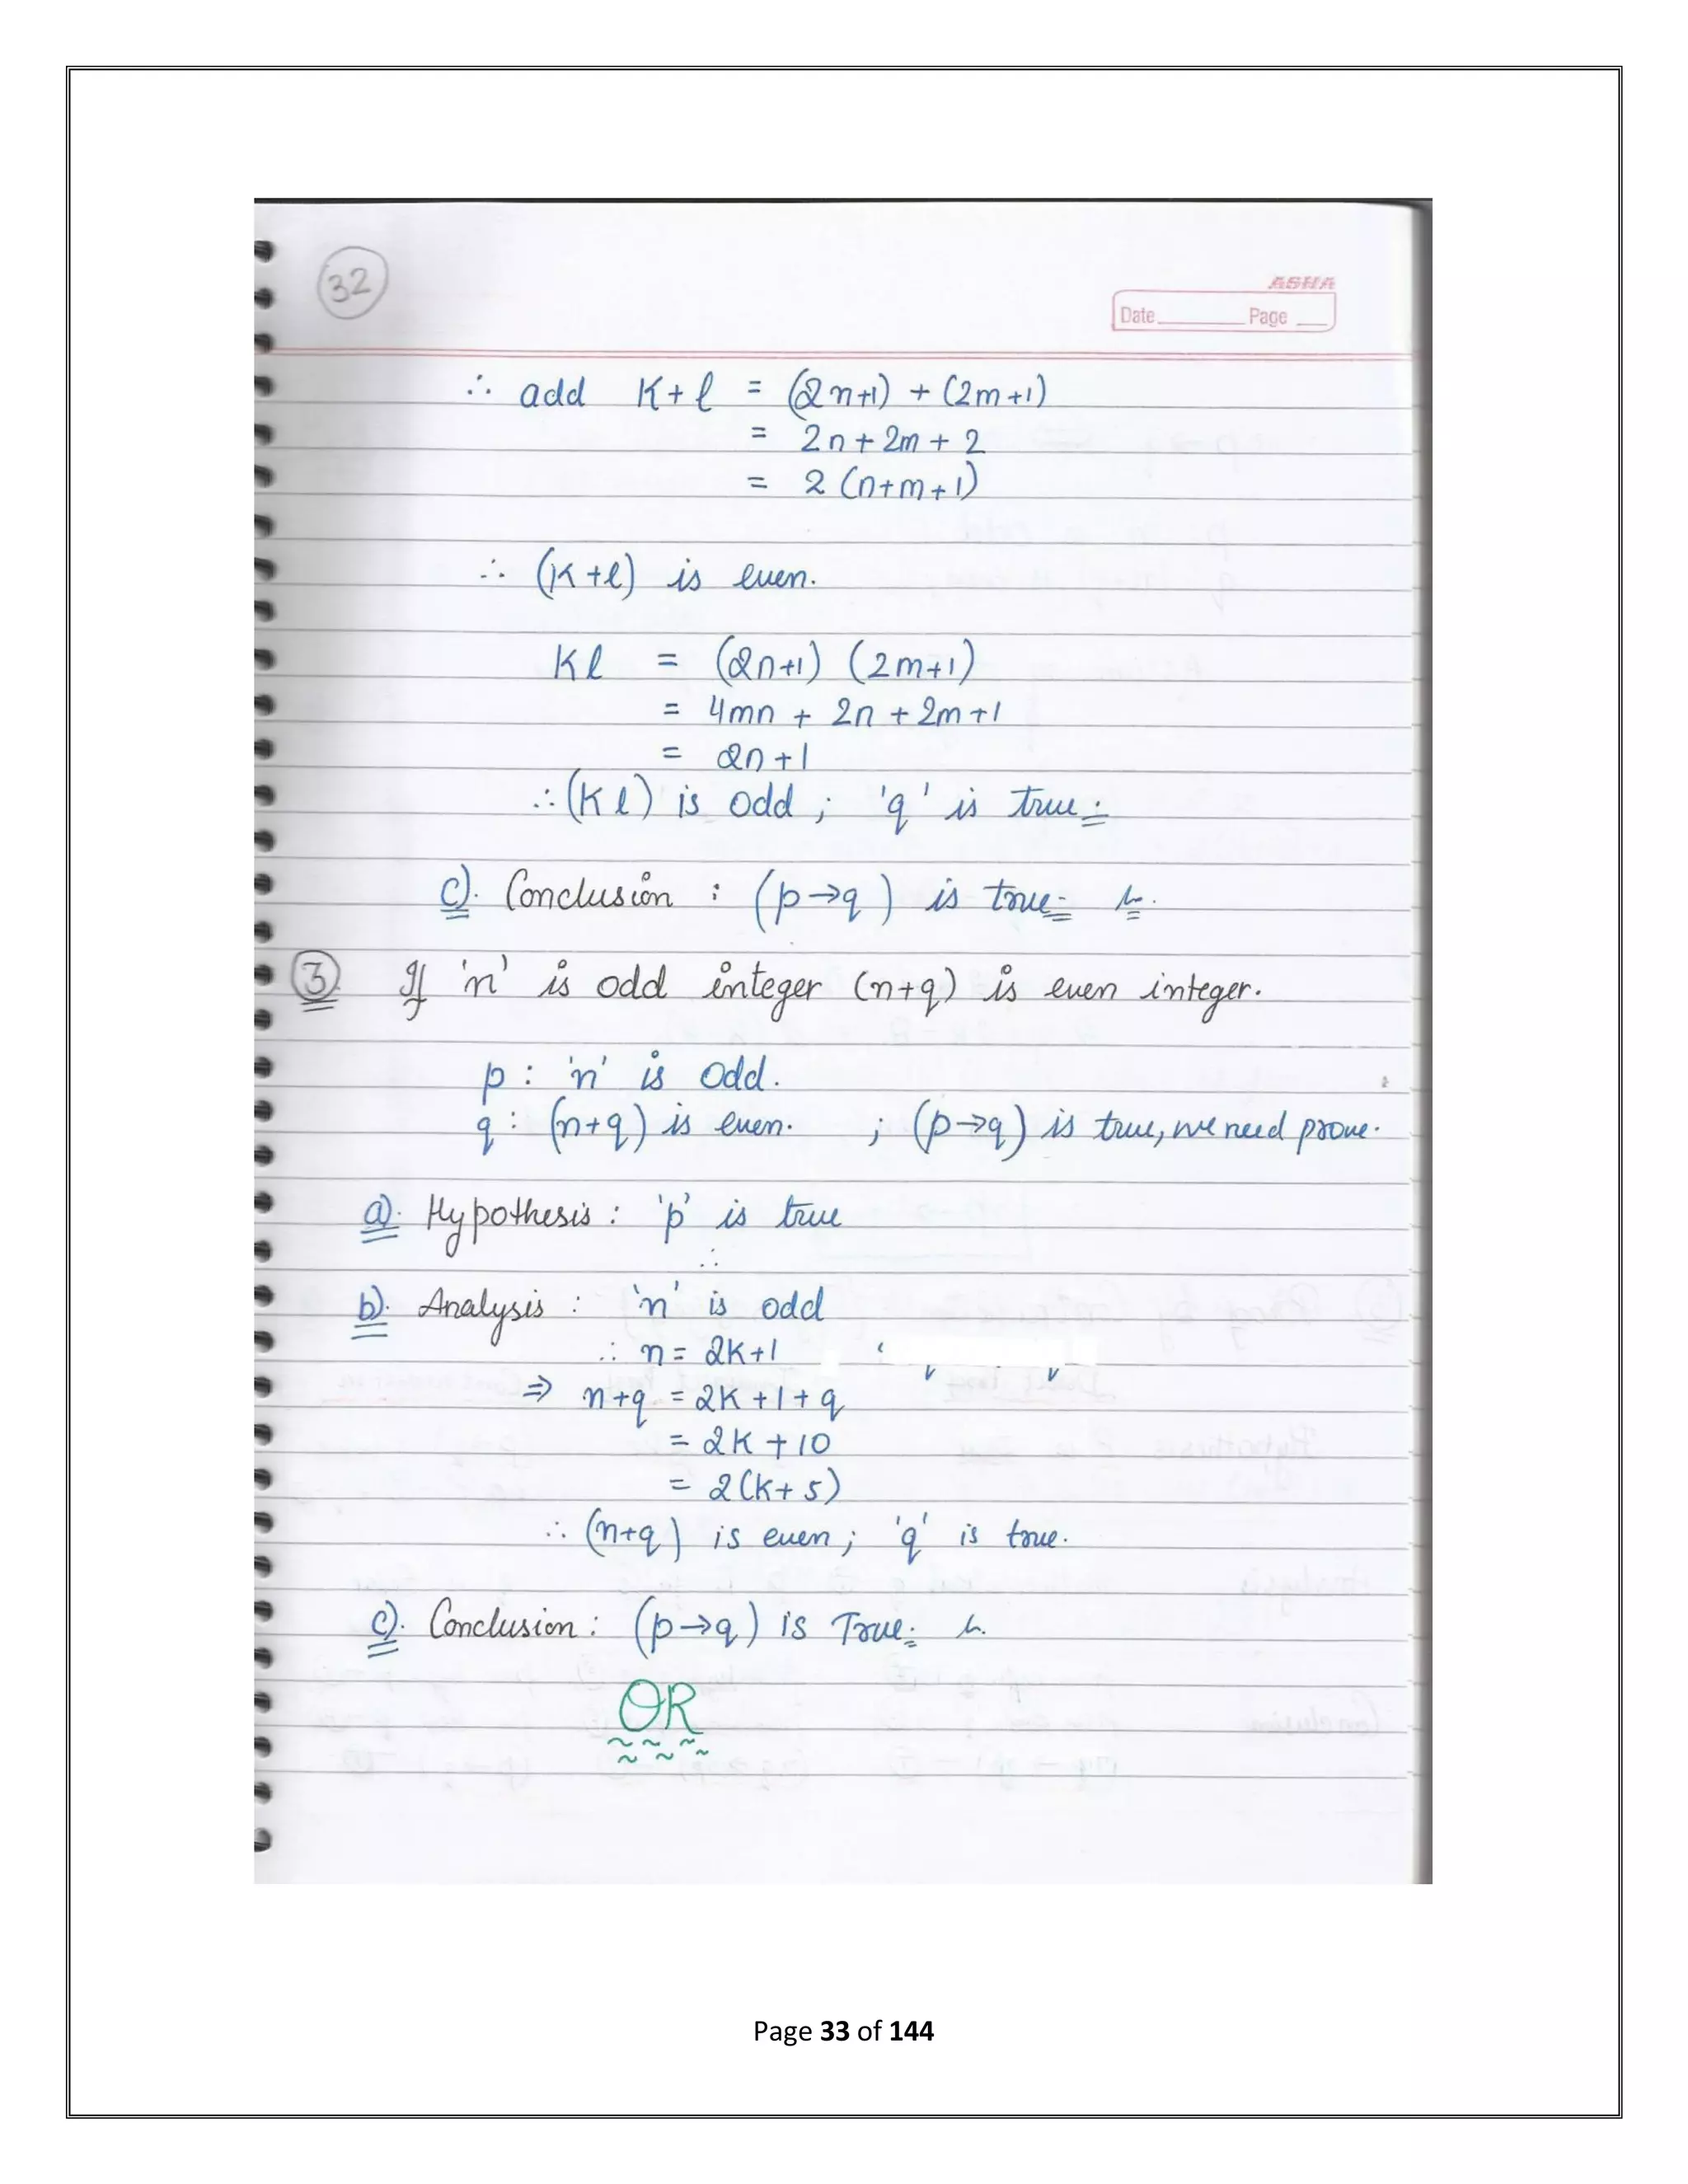 32
ASHA
Date Page
∴ add K+l = (2n+1) + (2m+1)
= 2n + 2m + 2
= 2 (n+m+1)
∴ (K+l) is even.
Kl = (2n+1) (2m+1)
= 4mn + 2n + 2m +1
= 2n+1
∴ (Kl) is odd ; 'q' is true.
c). Conclusion : (p→q) is true.
3 If 'n' is odd integer (n+9) is even integer.
p : 'n' is odd.
q : (n+9) is even. ; (p→q) is true, we need prove.
a). Hypothesis : 'p' is true
∴
b). Analysis : 'n' is odd
∴ n = 2K+1
⇒ n+9 = 2K+1+9
= 2K+10
= 2(K+5)
∴ (n+9) is even ; 'q' is true.
c). Conclusion : (p→q) is True.
OR
Page 33 of 144